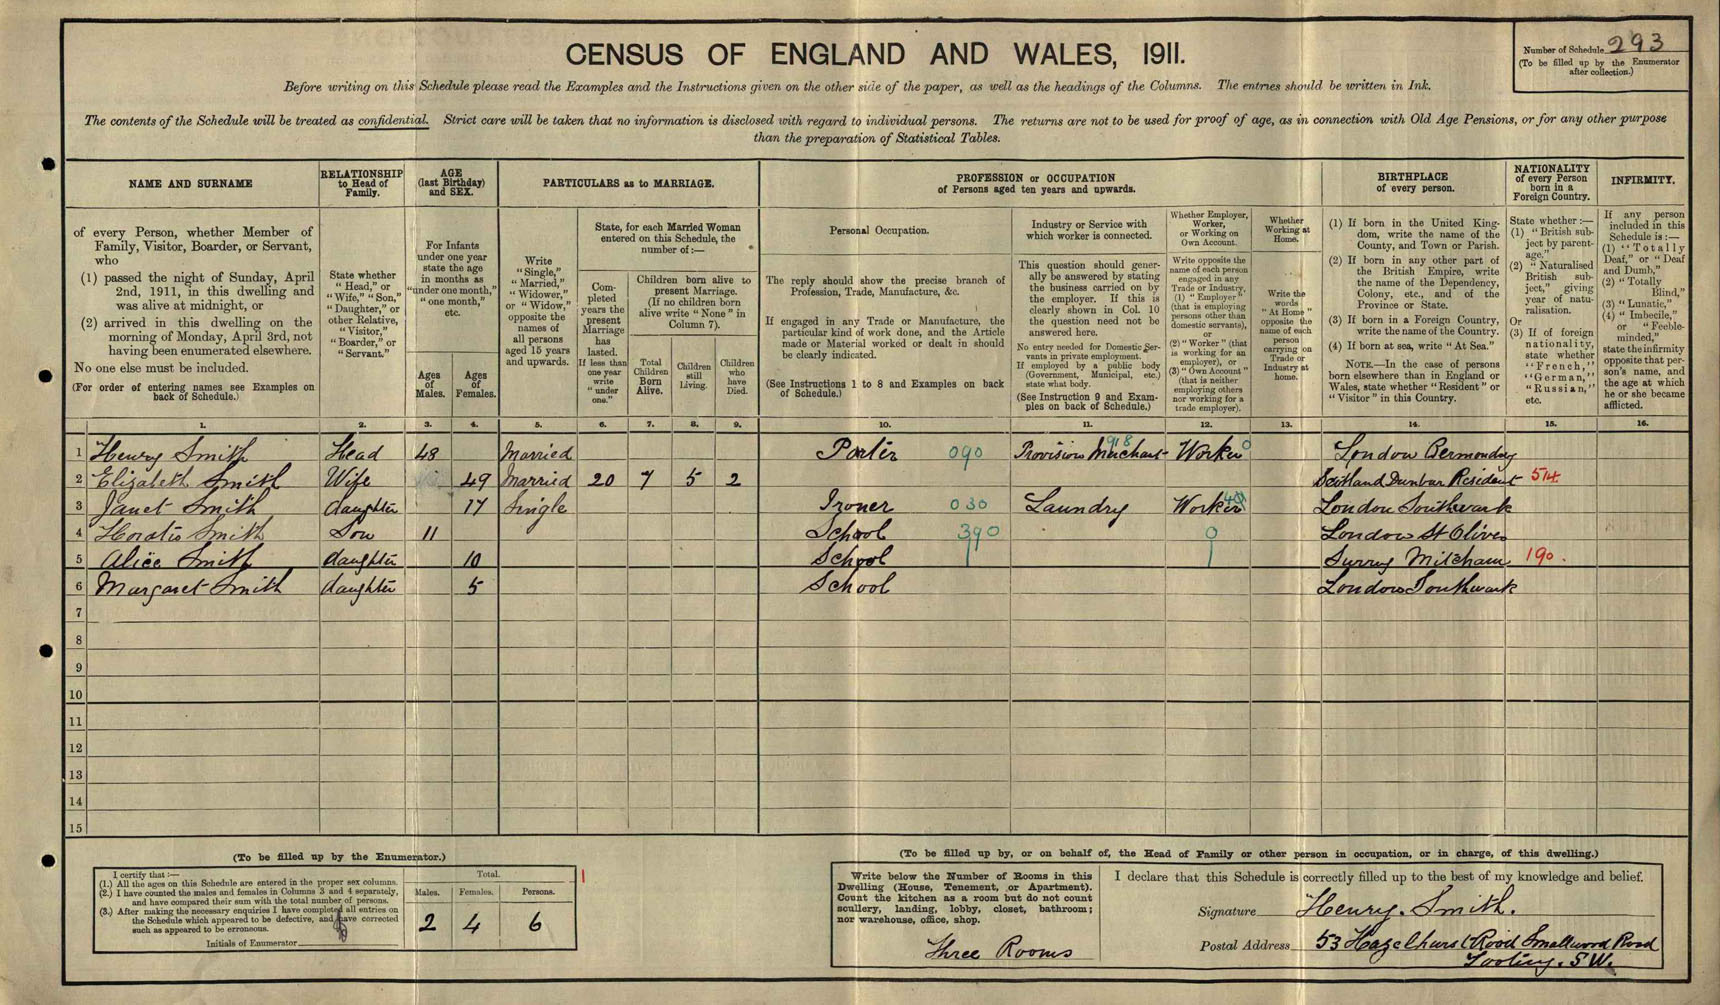 CENSUS OF ENGLAND AND WALES, 1911.
Number of Schedule 293
(To be filled up by the Enumerator
after collection.)
Before writing on this Schedule please read the Examples and the Instructions given on the other side of the paper, as well as the headings of the Columns. The entries should be written in Ink.
The contents of the Schedule will be treated as confidential. Strict care will be taken that no information is disclosed with regard to individual persons. The returns are not to be used for proof of age, as in connection with Old Age Pensions, or for any other purpose
than the preparation of Statistical Tables.
NAME AND SURNAME
of every Person, whether Member of
Family, Visitor, Boarder, or Servant,
who
(1) passed the night of Sunday, April
2nd, 1911, in this dwelling and
was alive at midnight, or
(2) arrived in this dwelling on the
morning of Monday, April 3rd, not
having been enumerated elsewhere.
No one else must be included.
(For order of entering names see Examples on
back of Schedule.)
RELATIONSHIP
to Head of
Family.
State whether
"Head," or
"Wife," "Son,"
"Daughter," or
other Relative,
"Visitor,"
"Boarder," or
"Servant."
AGE
(last Birthday)
and SEX.
For Infants
under one year
state the age
in months as
"under one month,"
"one month,"
etc.
Ages
of
Males.
Ages
of
Females.
PARTICULARS as to MARRIAGE.
Write
"Single,"
"Married,"
"Widower,"
or "Widow,"
opposite the
names of
all persons
aged 15 years
and upwards.
State, for each Married Woman
entered on this Schedule, the
number of:—
Com-
pleted
years the
present
Marriage
has
lasted.
If less than
one year
write
"under
one."
Children born alive to
present Marriage.
(If no children born
alive write "None" in
Column 7).
Total
Children
Born
Alive.
Children
still
Living.
Children
who
have
Died.
PROFESSION or OCCUPATION
of Persons aged ten years and upwards.
Personal Occupation.
The reply should show the precise branch of
Profession, Trade, Manufacture, &c.
If engaged in any Trade or Manufacture, the
particular kind of work done, and the Article
made or Material worked or dealt in should
be clearly indicated.
(See Instructions 1 to 8 and Examples on back
of Schedule.)
Industry or Service with
which worker is connected.
This question should gener-
ally be answered by stating
the business carried on by
the employer. If this is
clearly shown in Col. 10
the question need not be
answered here.
No entry needed for Domestic Ser-
vants in private employment.
If employed by a public body
(Government, Municipal, etc.)
state what body.
(See Instruction 9 and Exam-
ples on back of Schedule.)
Whether Employer,
Worker,
or Working on
Own Account.
Write opposite the
name of each person
engaged in any
Trade or Industry,
(1) "Employer"
(that is employing
persons other than
domestic servants),
or
(2) "Worker" (that
is working for an
employer), or
(3) "Own Account"
(that is neither
employing others
nor working for a
trade employer).
Whether
Working at
Home.
Write the
words
"At Home"
opposite the
name of each
person
carrying on
Trade or
Industry at
home.
BIRTHPLACE
of every person.
(1) If born in the United King-
dom, write the name of the
County, and Town or Parish.
(2) If born in any other part of
the British Empire, write
the name of the Dependency,
Colony, etc., and of the
Province or State.
(3) If born in a Foreign Country,
write the name of the Country.
(4) If born at sea, write "At Sea."
NOTE.—In the case of persons
born elsewhere than in England or
Wales, state whether "Resident" or
"Visitor" in this Country.
NATIONALITY
of every Person
born in a
Foreign Country.
State whether:—
(1) "British sub-
ject by parent-
age."
(2) "Naturalised
British sub-
ject," giving
year of natu-
ralisation.
Or
(3) If of foreign
nationality,
state whether
"French,"
"German,"
"Russian,"
etc.
INFIRMITY.
If any person
included in this
Schedule is:—
(1) "Totally
Deaf," or "Deaf
and Dumb,"
(2) "Totally
Blind,"
(3) "Lunatic,"
(4) "Imbecile,"
or "Feeble-
minded,"
state the infirmity
opposite that per-
son's name, and
the age at which
he or she became
afflicted.
1. 2. 3. 4. 5. 6. 7. 8. 9. 10. 11. 12. 13. 14. 15. 16.
1 Henry Smith Head 48 Married Porter 090 Provision Merchant 918 Worker 0 London Bermondsy
2 Elizabeth Smith Wife 49 Married 20 7 5 2 Scotland Dunbar Resident 514
3 Janet Smith daughter 17 Single Ironer 030 Laundry Worker London Southwark
4 Horatio Smith Son 11 School 390 0 London St Olives
5 Alice Smith daughter 10 School Surrey Mitcham 190.
6 Margaret Smith daughter 5 School London Southwark
7
8
9
10
11
12
13
14
15
(To be filled up by the Enumerator.)
I certify that:—
(1.) All the ages on this Schedule are entered in the proper sex columns.
(2.) I have counted the males and females in Columns 3 and 4 separately,
and have compared their sum with the total number of persons.
(3.) After making the necessary enquiries I have completed all entries on
the Schedule which appeared to be defective, and have corrected
such as appeared to be erroneous.
Initials of Enumerator
Total.
Males. Females. Persons.
2 4 6
(To be filled up by, or on behalf of, the Head of Family or other person in occupation, or in charge, of this dwelling.)
Write below the Number of Rooms in this
Dwelling (House, Tenement, or Apartment).
Count the kitchen as a room but do not count
scullery, landing, lobby, closet, bathroom;
nor warehouse, office, shop.
Three Rooms
I declare that this Schedule is correctly filled up to the best of my knowledge and belief.
Signature Henry. Smith.
Postal Address 53 Hazelhurst Road Smallwood Road
Tooting. S.W.